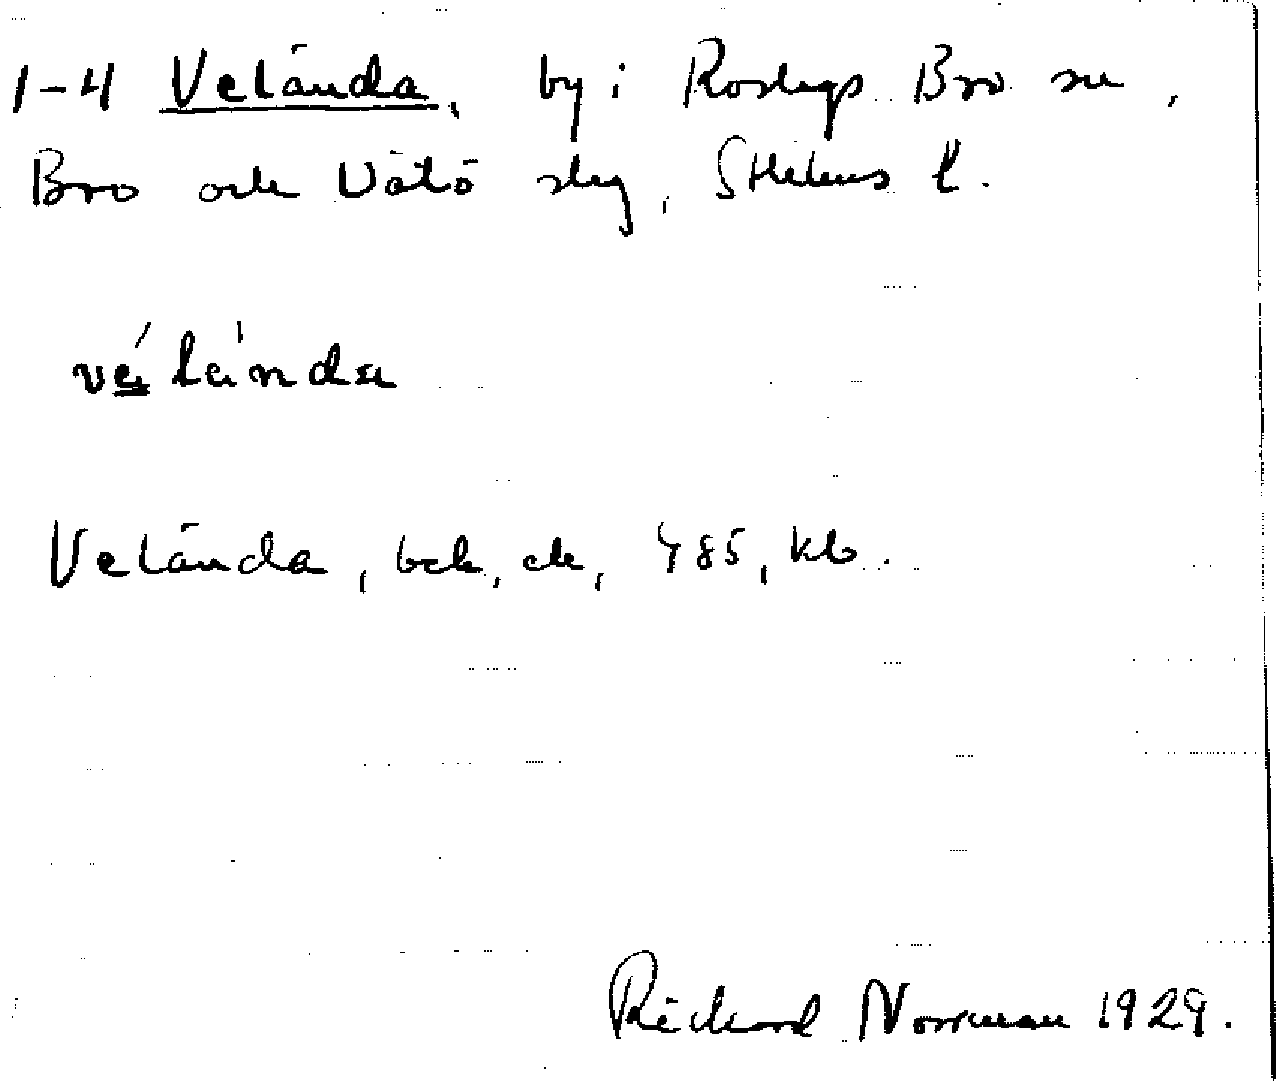 1-4 Velända, by i Roslags Bro sn,
Bro och Vätö slg, Sthlms l.
vélánda
Velända, bck, ek, 485, kb.
Richard Norrman 1929.